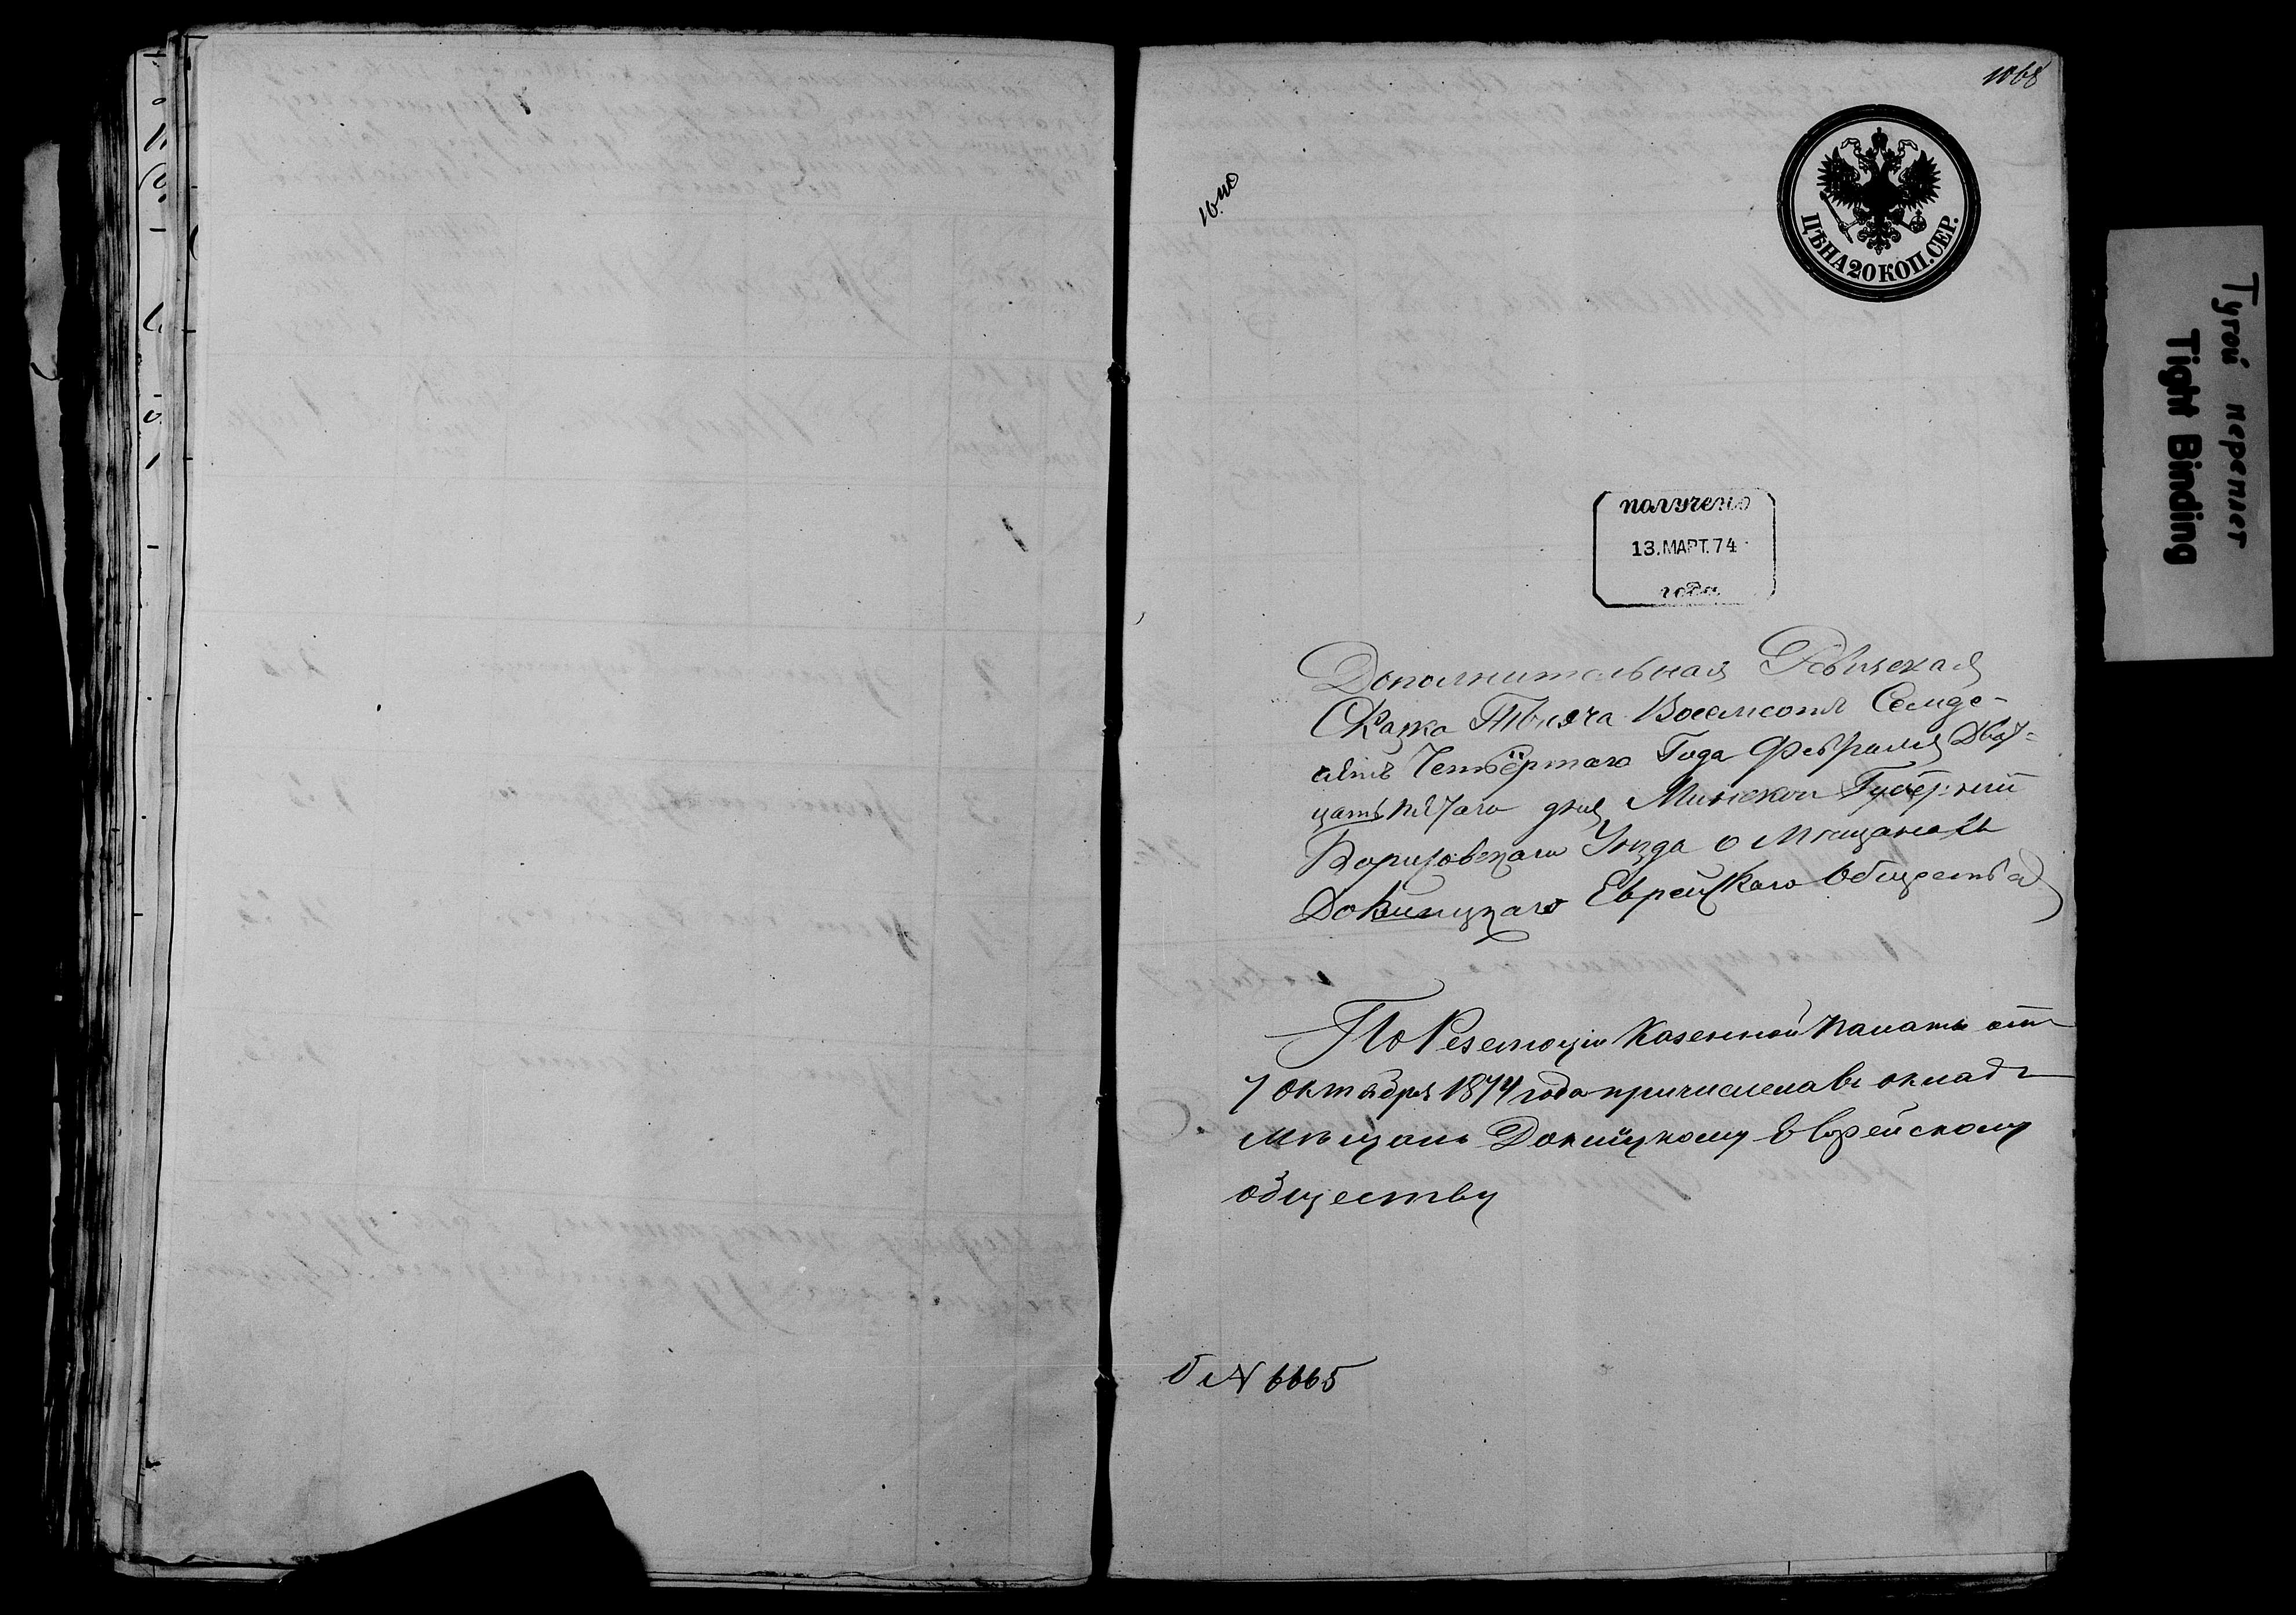 1068
1040
ЦѢНА 20 КОП. СЕР.
получено
13. МАРТ. 74
года
Дополнительная Ревизская
Сказка Тысяча Восемсотъ Семде-
сятъ Четвёртаго Года Февраля Двад-
цать пятаго дня Минской Губерніи
Борисовскаго Уѣзда о Мѣщанахъ
Докшицкаго Еврейскаго Общества
По Резолюціи Казенной Палаты отъ
7 октября 1874 года причислена въ окладъ
мѣщанъ Докшицкому Еврейскому
обществу
№ 6665
Тугой переплет
Tight Binding